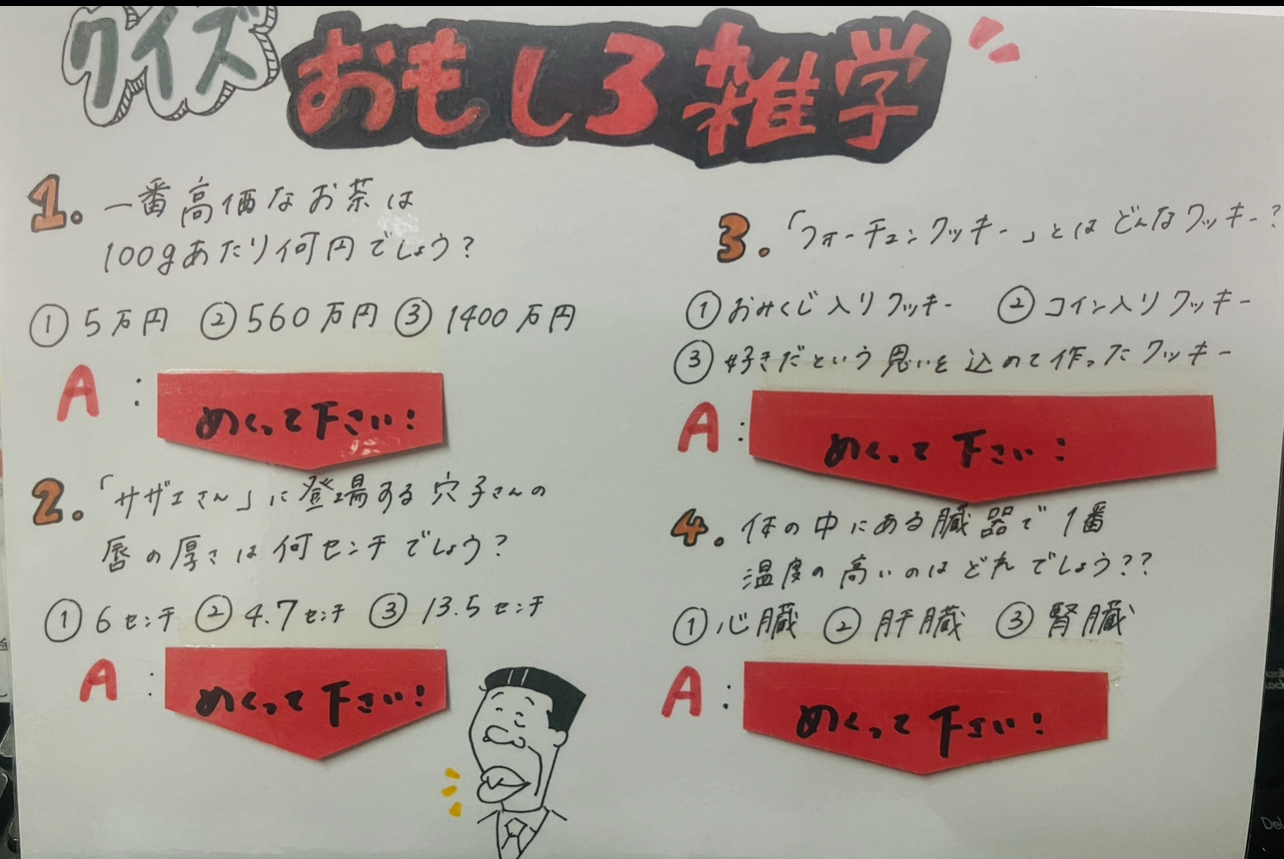 クイズ おもしろ雑学
1. 一番高価なお茶は
100gあたり何円でしょう？
① 5万円 ② 560万円 ③ 1400万円
A：めくって下さい！
2. 「サザエさん」に登場する穴子さんの
唇の厚さは何センチでしょう？
① 6センチ ② 4.7センチ ③ 13.5センチ
A：めくって下さい！
3. 「フォーチュンクッキー」とはどんなクッキー？
① おみくじ入りクッキー ② コイン入りクッキー
③ 好きだという思いを込めて作ったクッキー
A：めくって下さい！
4. 体の中にある臓器で1番
温度の高いのはどれでしょう？？
① 心臓 ② 肝臓 ③ 腎臓
A：めくって下さい！